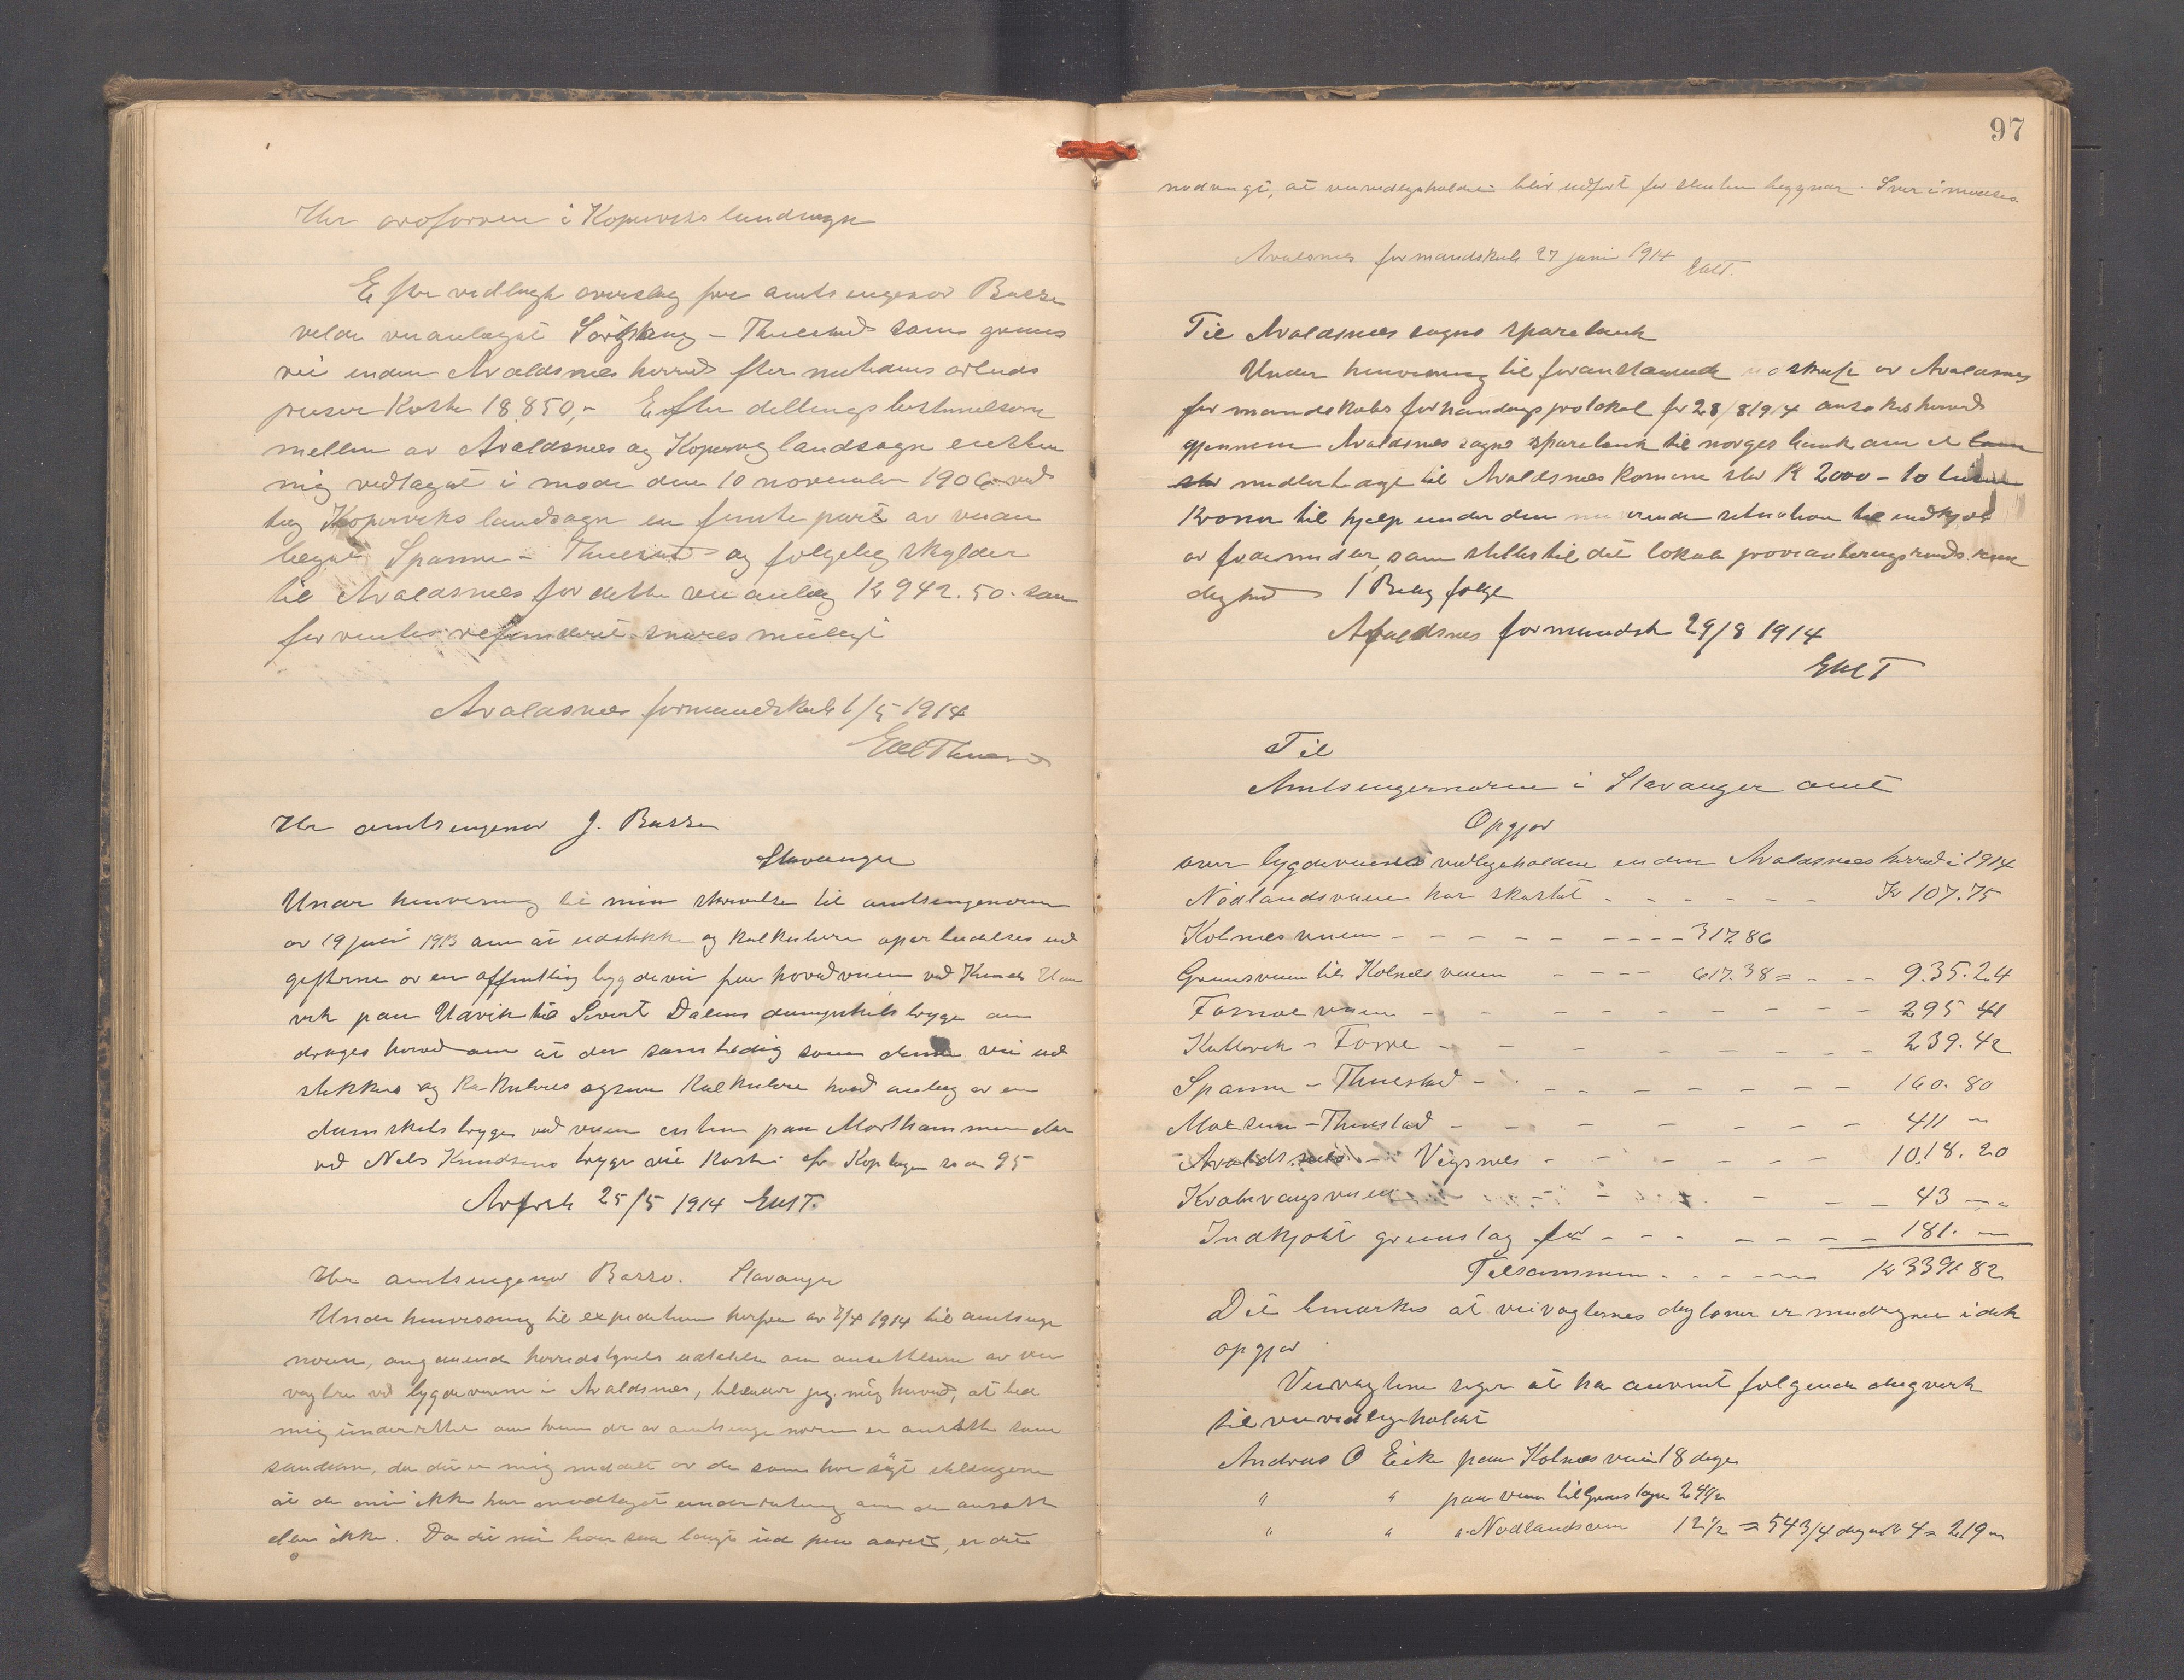 Hr ordføreren i Kopervik landsogn
Efter vedlagt overslag fra amtsingeniør Basse
vilde veianlægget Sörstrang - Thuestad som grums
vei inden Avaldsnes herred efter nutidens arbeids
priser koste 18 850,- Efter delings bestemelserne
mellem av Avaldsnes og Kopervig landsogn
vedtaget i møde den 10 november 1906
Koperviks landsogn en femte part av veian
lægget Spanne - Thuestad og følgelig skylder
til Avaldsnes for dette veianlæg Kr 942.50. som
forventes refunderet snarest muligt
Avaldsnes formandskab 1/5 1914
Hr amtsingeniør J. Basse
Stavanger
Under henvisning til min skrivelse til amtsingeniøren
av 19 juni 1913 om at udstikke og kalkulere
gifterne av en offentlig bygdevei fra hovedveien ved Knuds
vik paa Utvik til Sivert Dalens dampskibsbrygge an
drages herved om at der samtidig som denne vei ud
stikkes og kalkuleres ogsaa kalkulere hvad anlæg av en
damskibs brygge ved veiens enden paa Morthammeren eller
ved Nils Knudsens brygge vil koste
25/5 1914
Hr amtsingeniør Basse. Stavanger
Under henvisning til expedition herfra av 7/4 1914 til amtsinge
niøren, angaaende herredstyrets udtalelse om ansettelsene av vei
vogtere ved bygdeveiene i Avaldsnes, tillader jeg mig herved, at bede
mig underrettet om hvem der av amtsingeniøren er ansatte som
saadan, da det er mig meddelt av de som har søgt stillingene
at de enn ikke har modtaget underretning om de ansatt
eller ikke. Da det nu er saa langt ud paa aaret, er det
97
nødvendigt, at veivedligeholdet blir udført før slaatten begynder. Svar imøtesees
Avaldsnes formandskab 27 juni 1914
Til Avaldsnes sogns sparebank
Under henvisning til foranstaaende utskrift av Avaldsnes
formandskabs forhandlingsprotokol for 28/8 1914 ansøkes herved
gjennem Avaldsnes sogns sparebank til norges bank om et laan
midlertidige til Avaldsnes komune stor K 2000 - to tusen
Kroner til hjelp under den nuværende situation til indkjøb
av fødemidler, som stilles til det lokale provianteringsraads raa
dighed 1 Bilag følge
Avaldsnes formandsk 29/8 1914
Til
Amtsingeniøren i Stavanger amt
Opgjør
over bygdeveienes vedligeholdene inden Avaldsnes herred i 1914
Nodlandsveien har kostet - - - - - - Kr 107.75
Kolnesveien - - - - - - - - - 317.86
Grumsveien til Kolnesveien - - - - 617.38 = - - - 935.24
Fosnoe veien - - - - - - - - - 295 41
- Fosse - - - - - - - - 239.42
Spanne - Thuestad - - - - - - - 160. 80
- Thuestad - - - - - - - 411 -
Avaldsnes - Vigsnes - - - - - - 1018. 20
Kvalavaagsveien - - - - - - - 43 -
Indkjøbt grumstag for - - - - - - - 181. -
Tilsammen - - - - - Kr 3391 82
Det bemærkes at veivogternes daglønner er medregnet i dette
opgjør
Veivogterne siger at ha anvent følgende dagverk
til veivedligeholdet
Andreas O Eike paa Kolnesveien 18 dage
" " paa veien til grumstagen 24 1/4
" " " Nodlandsveien 12 1/2 = 54 3/4 dag a Kr 4 = 219